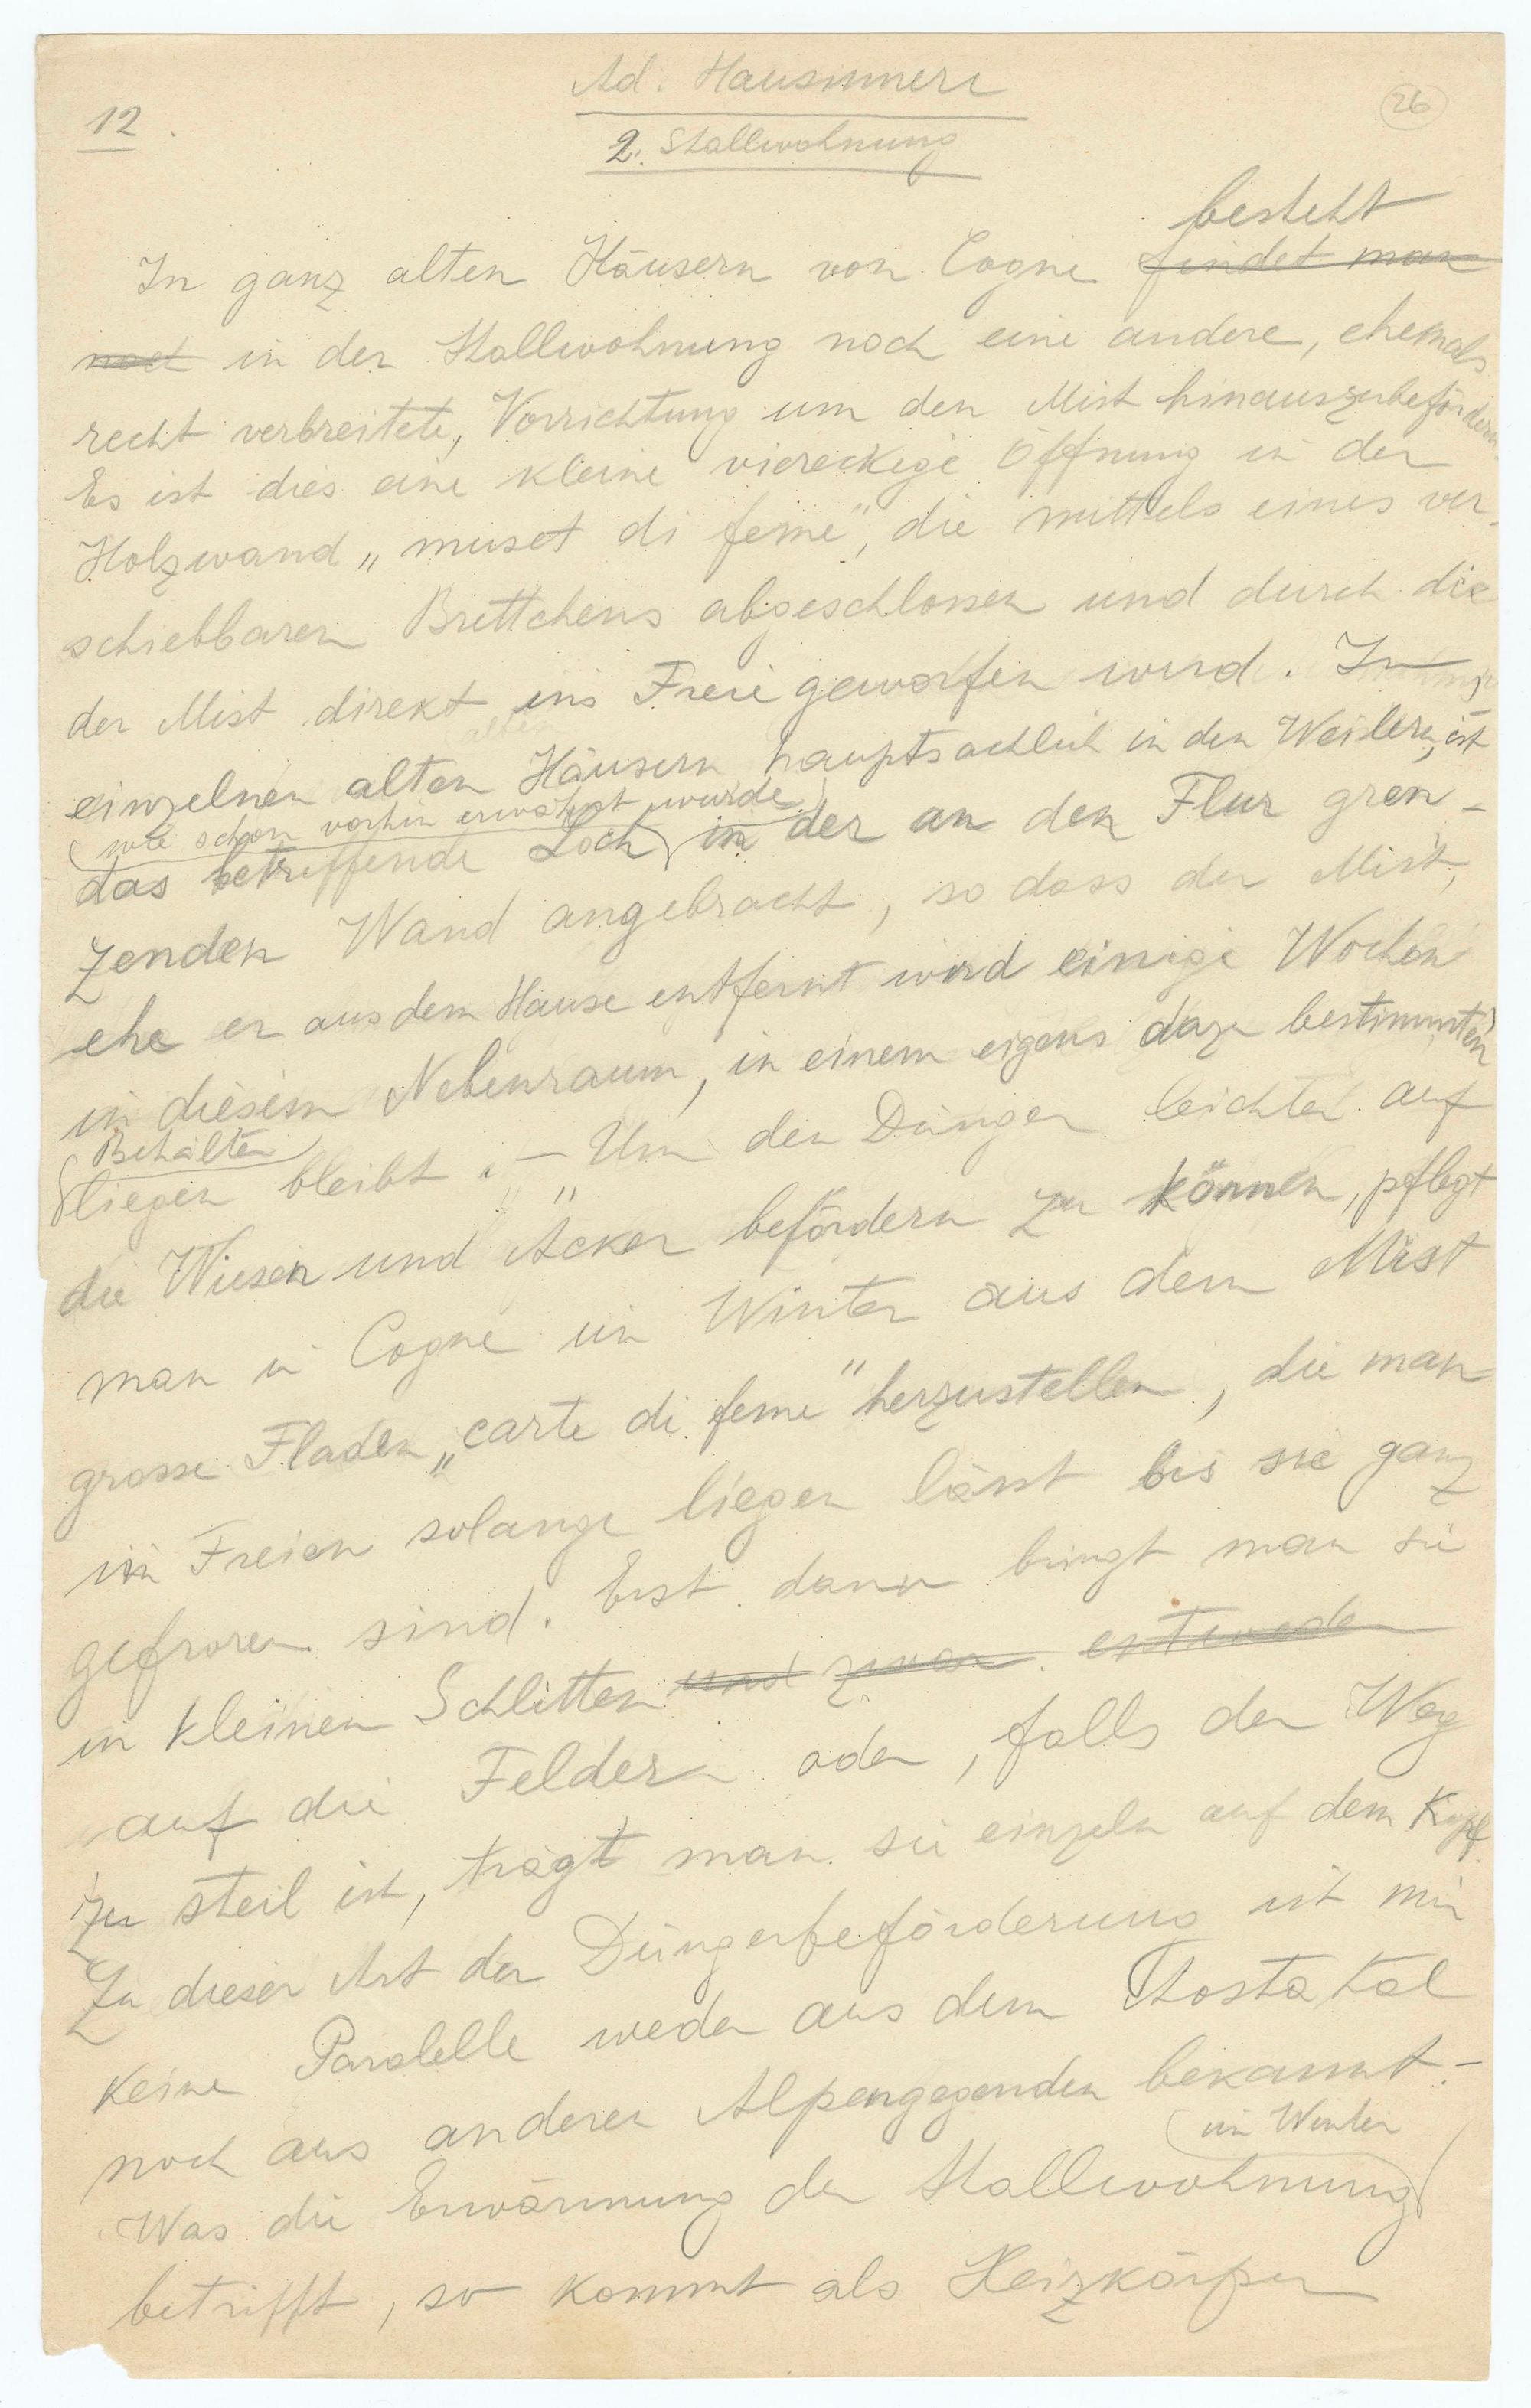 Ad. Hausinnere
26
12.
2. Stallwohnung
besteht
In ganz alten Häusern von Cogne findet man
noch in der Stallwohnung noch eine andere, ehemals
recht verbreitete, Vorrichtung um den Mist hinauszubefördern.
Es ist dies eine kleine viereckige Öffnung in der
Holzwand „muset di feme", die mittels eines ver-
schiebbaren Brettchens abgeschlossen und durch die
der Mist direkt ins Freie geworfen wird. In
einzelnen alten Häusern, hauptsächlich in den Weilern, ist
wie schon vorhin erwähnt wurde
das betreffende Loch in der an den Flur gren-
zenden Wand angebracht, so dass der Mist,
ehe er aus dem Hause entfernt wird einige Wochen
in diesem Nebenraum, in einem eigens dazu bestimmten
Behälter
liegen bleibt. – Um den Dünger leichter auf
die Wiesen und Äcker befördern zu können, pflegt
man in Cogne im Winter aus dem Mist
grosse Fladen „carte di feme" herzustellen, die man
im Freien solange liegen lässt bis sie ganz
gefroren sind. Erst dann bringt man sie
in kleinen Schlitten und zwar entweder
auf die Felder oder, falls der Weg
zu steil ist, trägt man sie einzeln auf dem Kopf.
Zu dieser Art der Düngerbeförderung ist mir
keine Paralelle weder aus dem Aostatal
noch aus anderen Alpengegenden bekannt. –
im Winter
Was die Erwärmung der Stallwohnung
betrifft, so kommt als Heizkörper